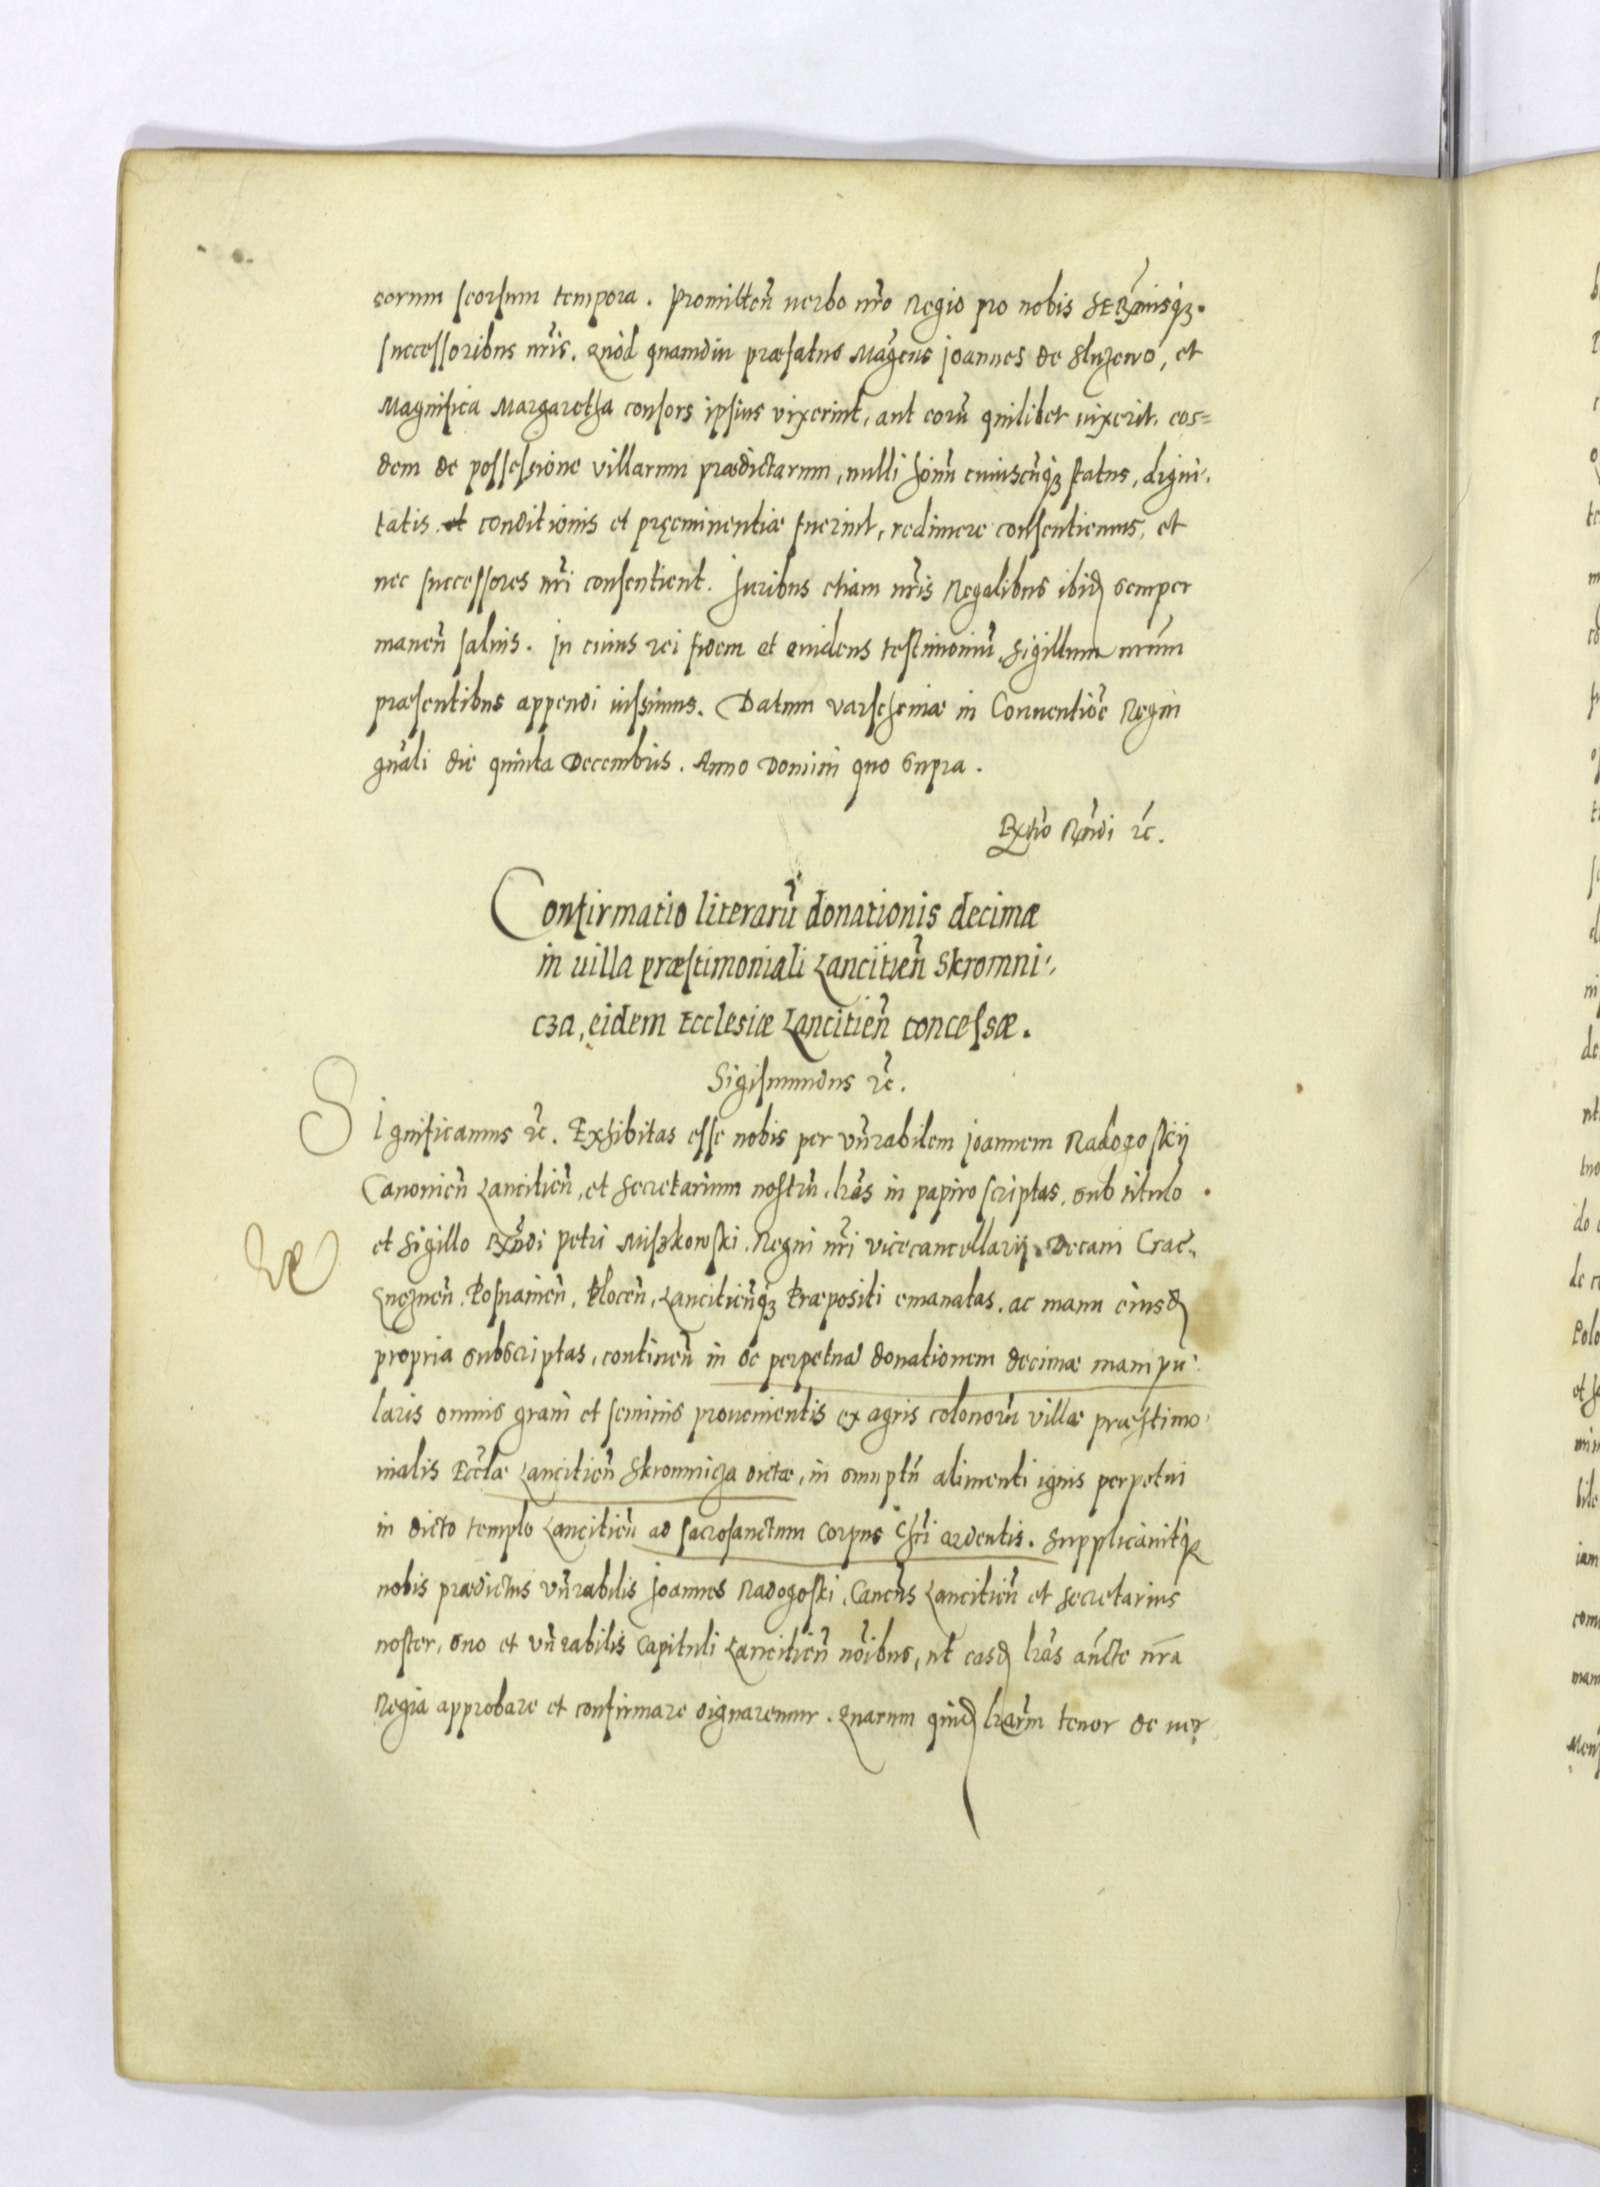 eorum seorsum tempora. Promitteñ verbo nr̃o Regio pro nobis Ser̃misq́ꝫ.
successoribus nr̃is. Quòd quamdiu præfatus Mag̃cus Joannes de Sluzewo, et
Magnifica Margaretha consors ipsius vixerint, aut eorũ quilibet vixerit, eos=
dem de possessione villarum prædictarum, nulli hõim cuiuscũq́ꝫ status, digni-
tatis et conditionis et pręeminentiæ fuerint, redimere consentiemus, et
nec successores nr̃i consentient. Juribus etiam nr̃is Regalibus ibid̃ semper
maneñ saluis. In cuius rei fidem et euidens testimoniũ, Sigillum nr̃um
præsentibus appendi iussimus. Datum Varscheuiæ in Conuentiõe Regni
gñali die quinta Decembris. Anno Domini quo supra.
R̃ndi ꝛc̃.
Confirmatio literarũ donationis decimæ
in uilla præstimoniali Lancitieñ Skromni-
cza, eidem Ecclesiæ Lancitieñ concessæ.
Sigismundus ꝛc̃.
Significamus ꝛc̃. Exhibitas esse nobis per vñrabilem Joannem Radogoskij
Canonicũ Lancitieñ, et Secretarium nostrũ, lr̃as in papiro scriptas, sub titulo
et Sigillo R̃ndi Petri Miszkowski, Regni nr̃i Vicecancellarij, Decani Crac̃,
Gnezneñ, Posnanieñ, Ploceñ, Lancitieñq́ꝫ Præpositi emanatas, ac manu eiusd̃
propria subscriptas, contineñ in se perpetuã donationem decimæ manipu-
laris omnis grani et seminis prouenientis ex agris colonorũ villæ præstimo-
nialis Eccl̃æ Lancitieñ Skromnicza dictæ, in sumptũ alimenti ignis perpetui
in dicto templo Lancitieñ ad sacrosanctum Corpus Chr̃i ardentis. Supplicauitq́ꝫ
nobis prædictus vñrabilis Joannes Radogoski, Canc̃us Lancitieñ et Secretarius
noster, suo et vñrabilis Capituli Lancitieñ nõibus, ut easd̃ lr̃as auc̃te nr̃a
Regia approbare et confirmare dignaremur. Quarum quid̃ lr̃arũm tenor de ver